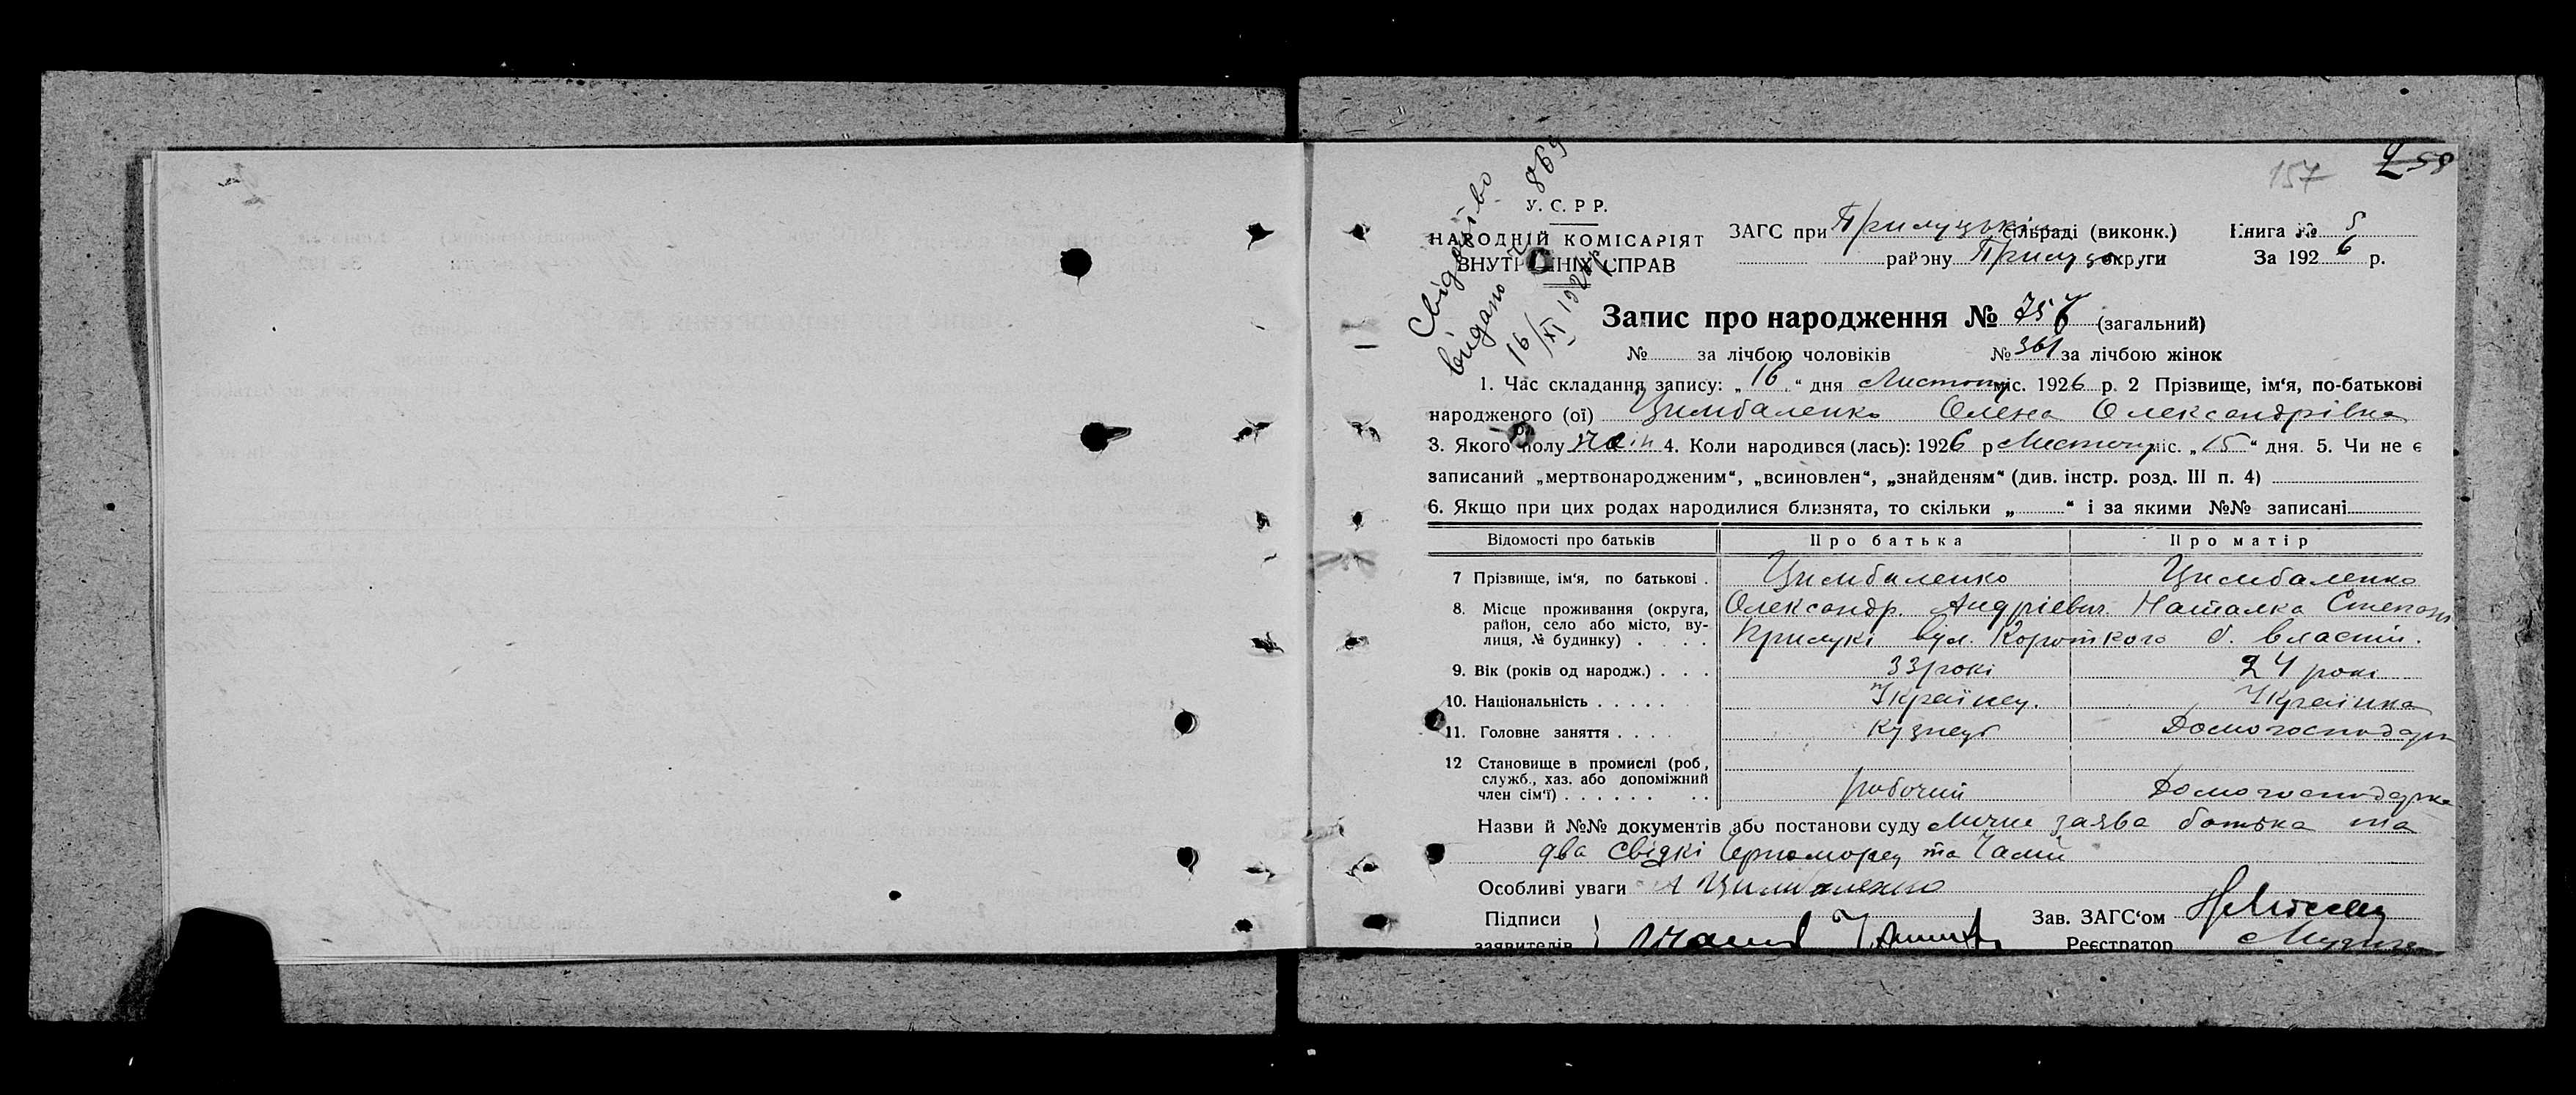 157 258
Свідоцтво
видано № 869
16/XI 1926 р.
У. С. Р Р.
НАРОДНІЙ КОМІСАРІЯТ
ВНУТРІШНІХ СПРАВ
ЗАГС при Прилуцькі сільраді (виконк.) Книга № 5
району Прилуц округи За 1926 р.
Запис про народження № 757 (загальний)
№ за лічбою чоловіків № 361 за лічбою жінок
1. Час складання запису: „16“ дня Листопу міс. 1926 р. 2 Прізвище, ім‘я, по-батькові
народженого (ої) Цимбаленко Олена Олександрівна
3. Якого полу жін 4. Коли народився (лась): 1926 р Листопу міс. „15“ дня. 5. Чи не є
записаний „мертвонародженим“, „всиновлен“, „знайденям“ (див. інстр. розд. III п. 4)
6. Якщо при цих родах народилися близнята, то скільки „ “ і за якими №№ записані
Відомості про батьків Про батька Про матір
7 Прізвище, ім‘я, по батькові . Цимбаленко Цимбаленко
8. Місце проживання (округа, Олександр. Андрієвич Наталка Степан
район, село або місто, ву-
лиця, № будинку) . . . . Прилукі вул. Короткого б. власний.
9. Вік (років од народж.) . . . 33 рокі 24 рокі
10. Національність . . . . . Українец. Українка
11. Головне заняття . . . . Кузнець Домогосподарк
12 Становище в промислі (роб,
служб., хаз. або допоміжний
член сім‘ї) . . . . . . . . робочий Домогосподарка
Назви й №№ документів або постанови суду Лична заява батька та
два свідкі Чорноморец та
Особливі уваги А Цимбаленко
Підписи Зав. ЗАГС‘ом
заявителів Реєстратор